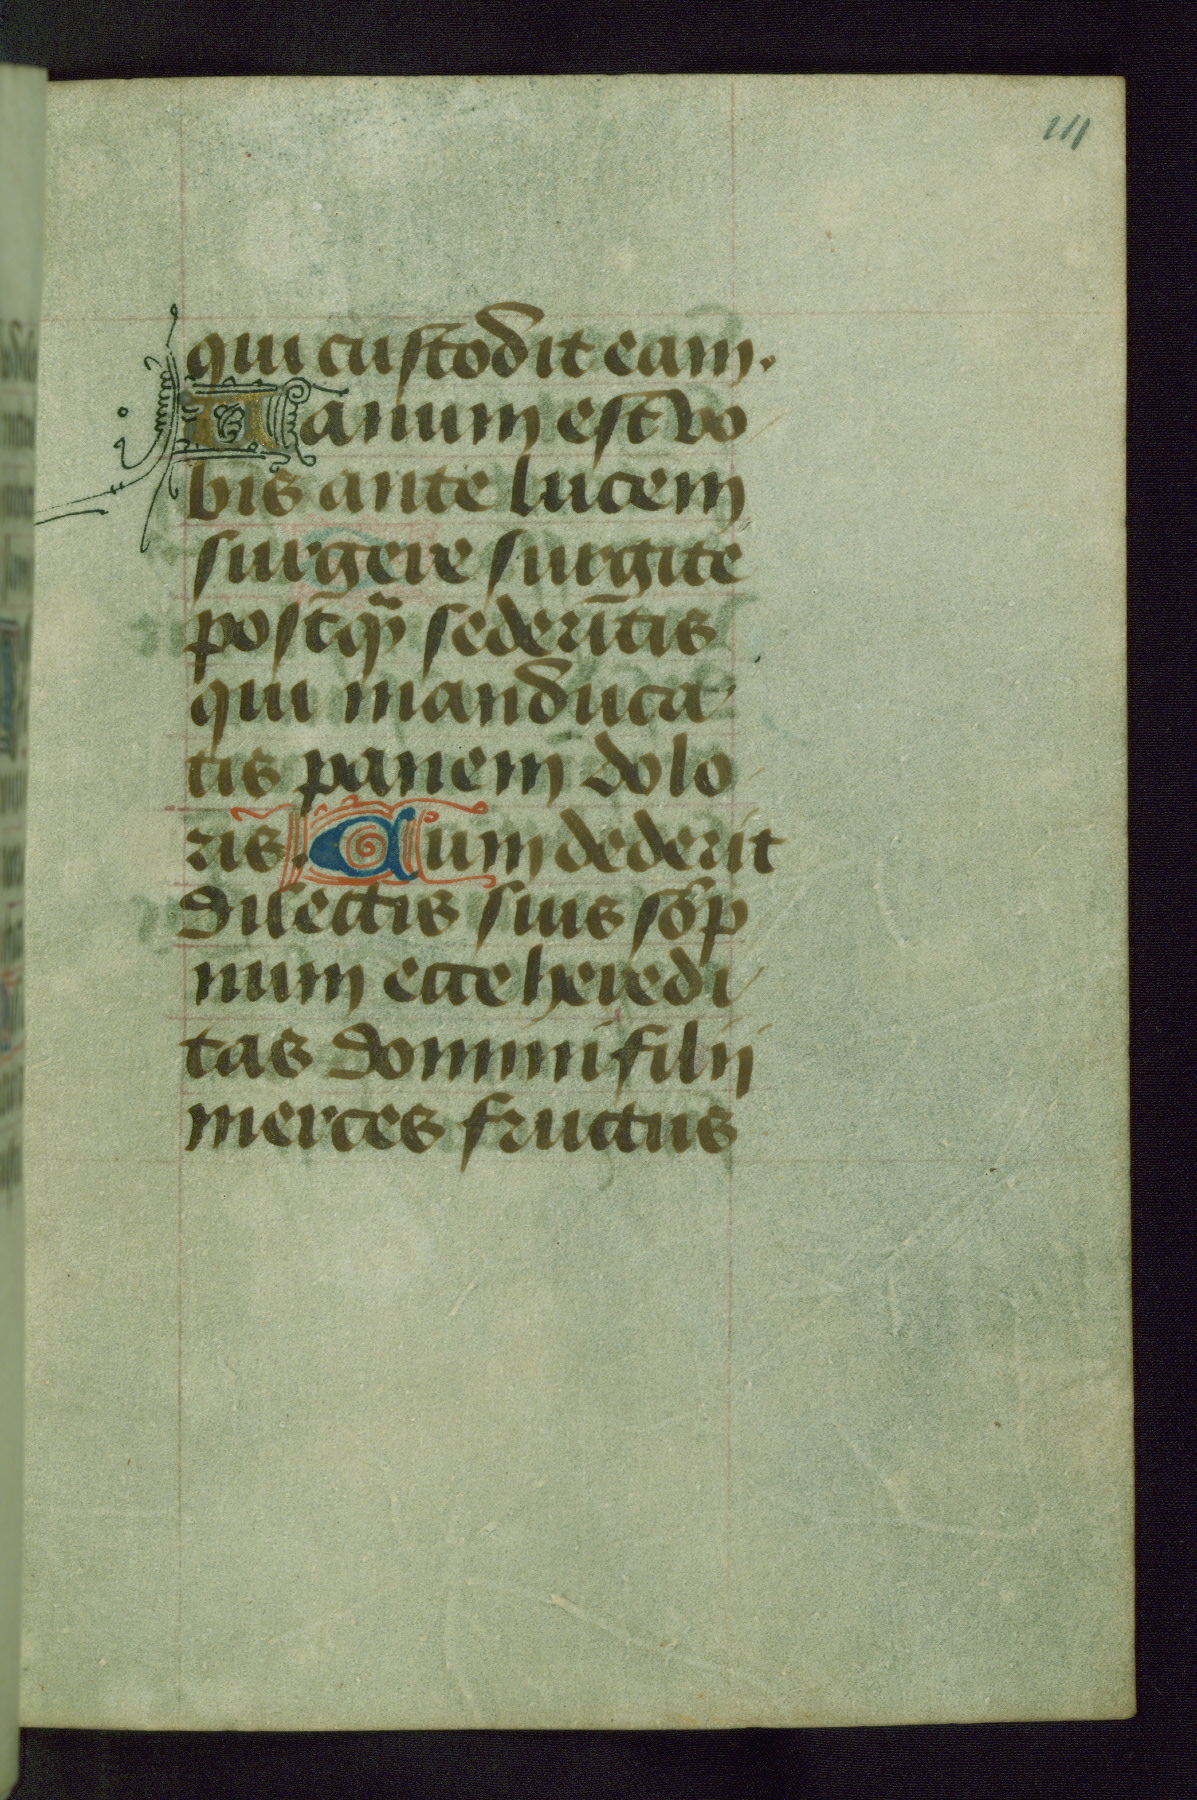 111
qui custodit eam.
Uanum est vo
bis ante lucem
surgere surgite
postq̃ sederītis
qui manduca
tis panem dolo
ris. Cum dederit
dilectis suis sõp
num ecce heredi
tas domini filij
merces fructus